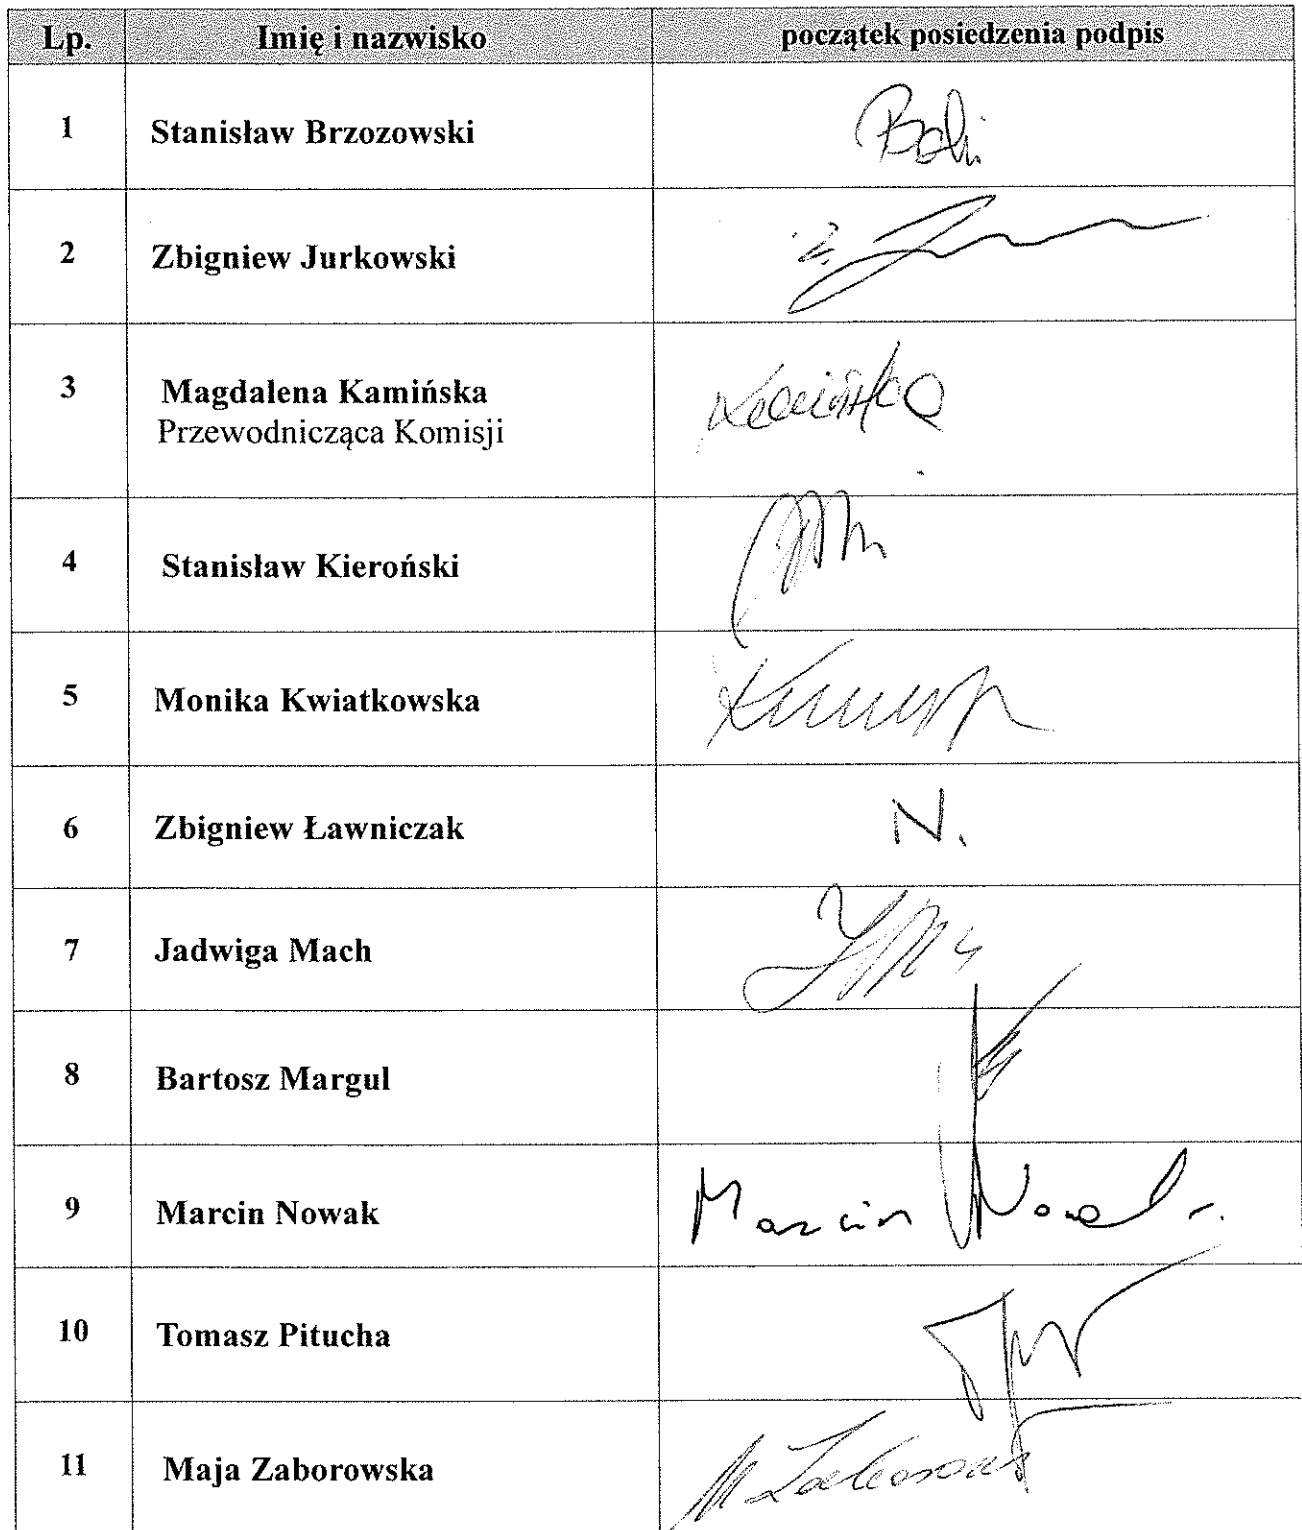 Lp. Imię i nazwisko początek posiedzenia podpis
1 Stanisław Brzozowski
2 Zbigniew Jurkowski Z.
3 Magdalena Kamińska Kamińska
Przewodnicząca Komisji
4 Stanisław Kieroński
5 Monika Kwiatkowska
6 Zbigniew Ławniczak N.
7 Jadwiga Mach
8 Bartosz Margul
9 Marcin Nowak Marcin Nowak
10 Tomasz Pitucha
11 Maja Zaborowska